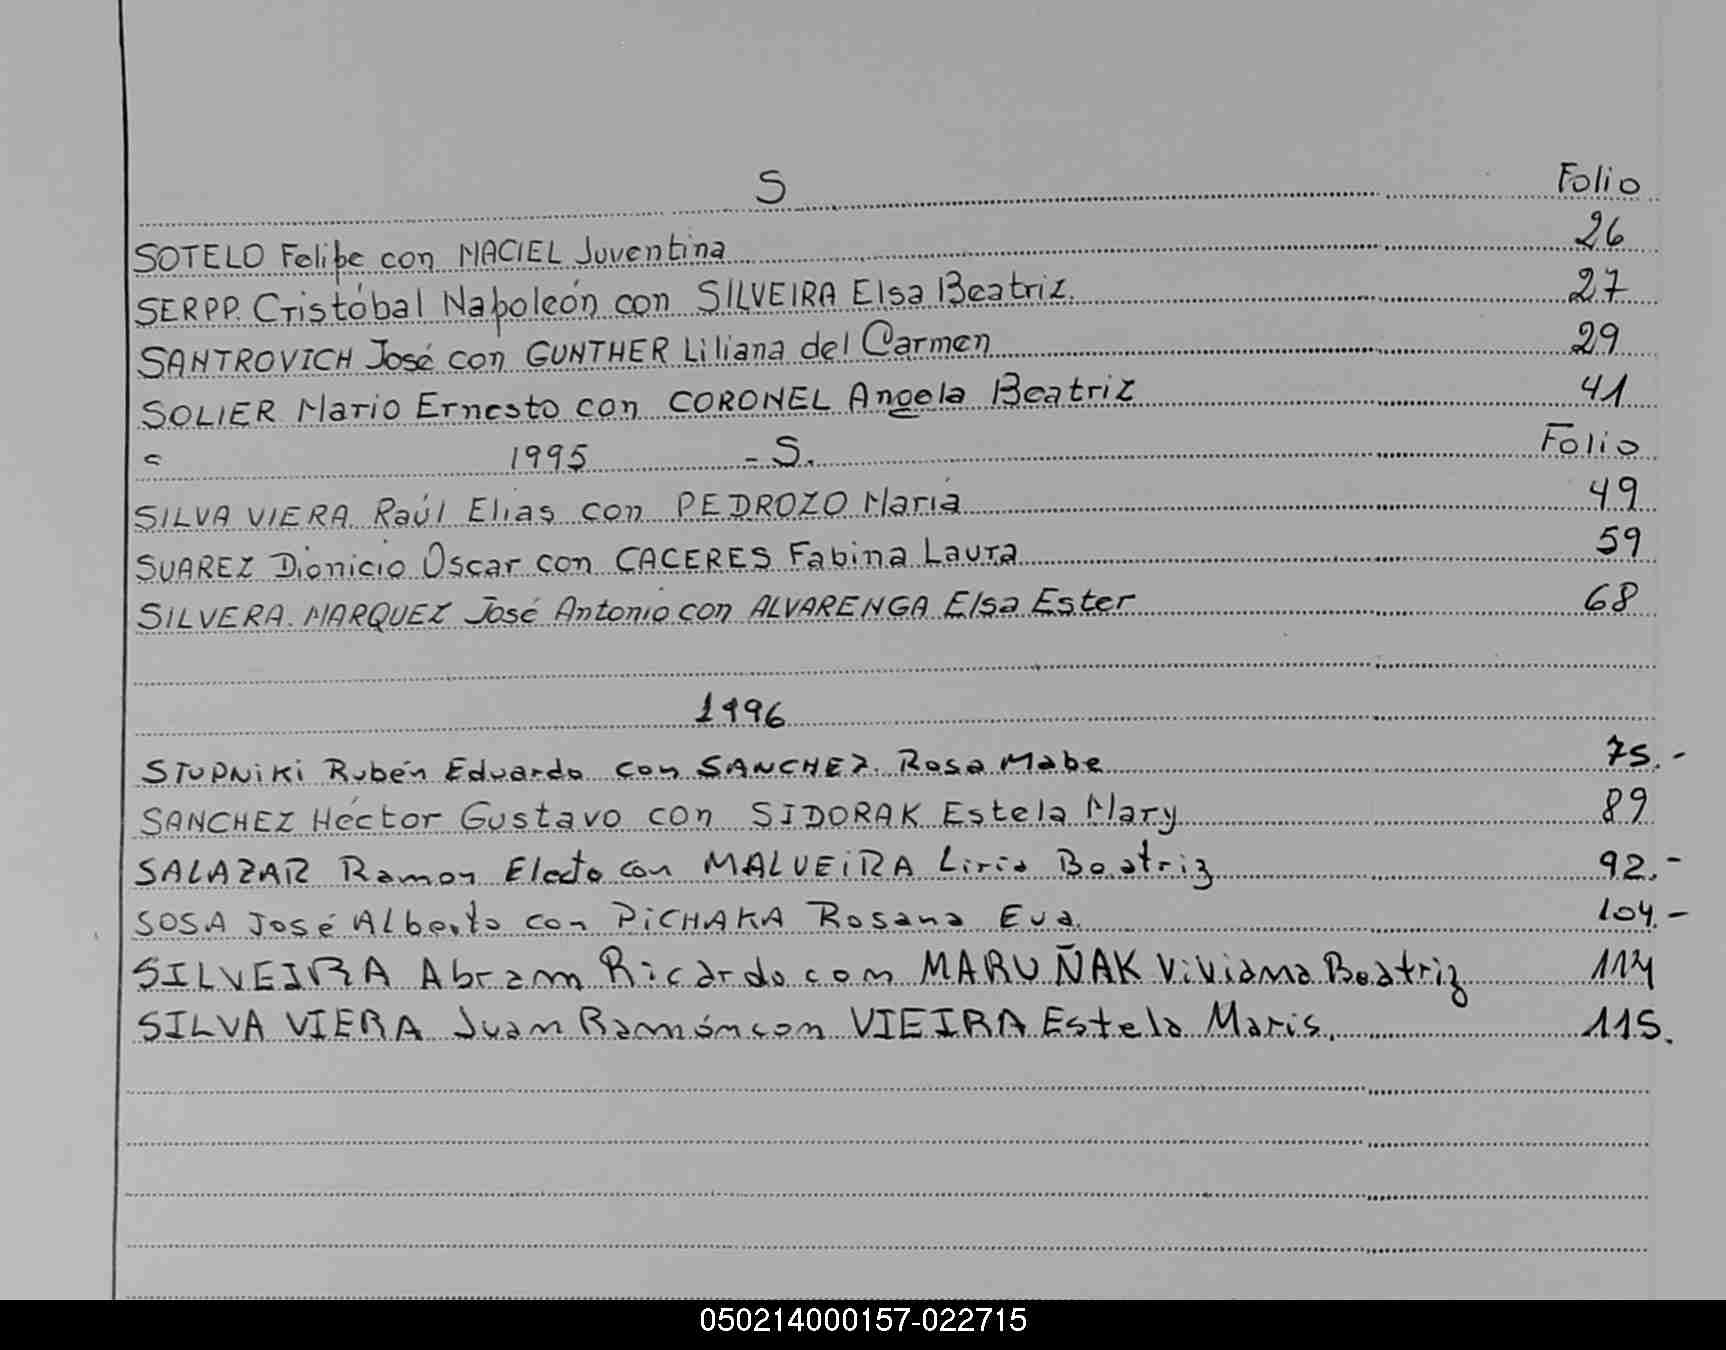 S Folio
SOTELO Felipe con MACIEL Juventina 26
SERPP. Cristóbal Napoleón con SILVEIRA Elsa Beatriz. 27
SANTROVICH José con GUNTHER Liliana del Carmen 29
SOLIER Mario Ernesto con CORONEL Angela Beatriz 41
1995 - S. Folio
SILVA VIERA Raúl Elías con PEDROZO María 49
SUAREZ Dionicio Oscar con CACERES Fabina Laura 59
SILVERA MARQUEZ José Antonio con ALVARENGA Elsa Ester 68
1996
STUPNIKI Rubén Eduardo con SANCHEZ Rosa Mabe 75.-
SANCHEZ Héctor Gustavo con SIDORAK Estela Mary 89
SALAZAR Ramon Electo con MALVEIRA Liria Beatriz 92.-
SOSA José Alberto con PICHAKA Rosana Eva. 104.-
SILVEIRA Abram Ricardo con MARUÑAK Viviana Beatriz 114
SILVA VIERA Juan Ramón con VIEIRA Estela Maris. 115.
050214000157-022715